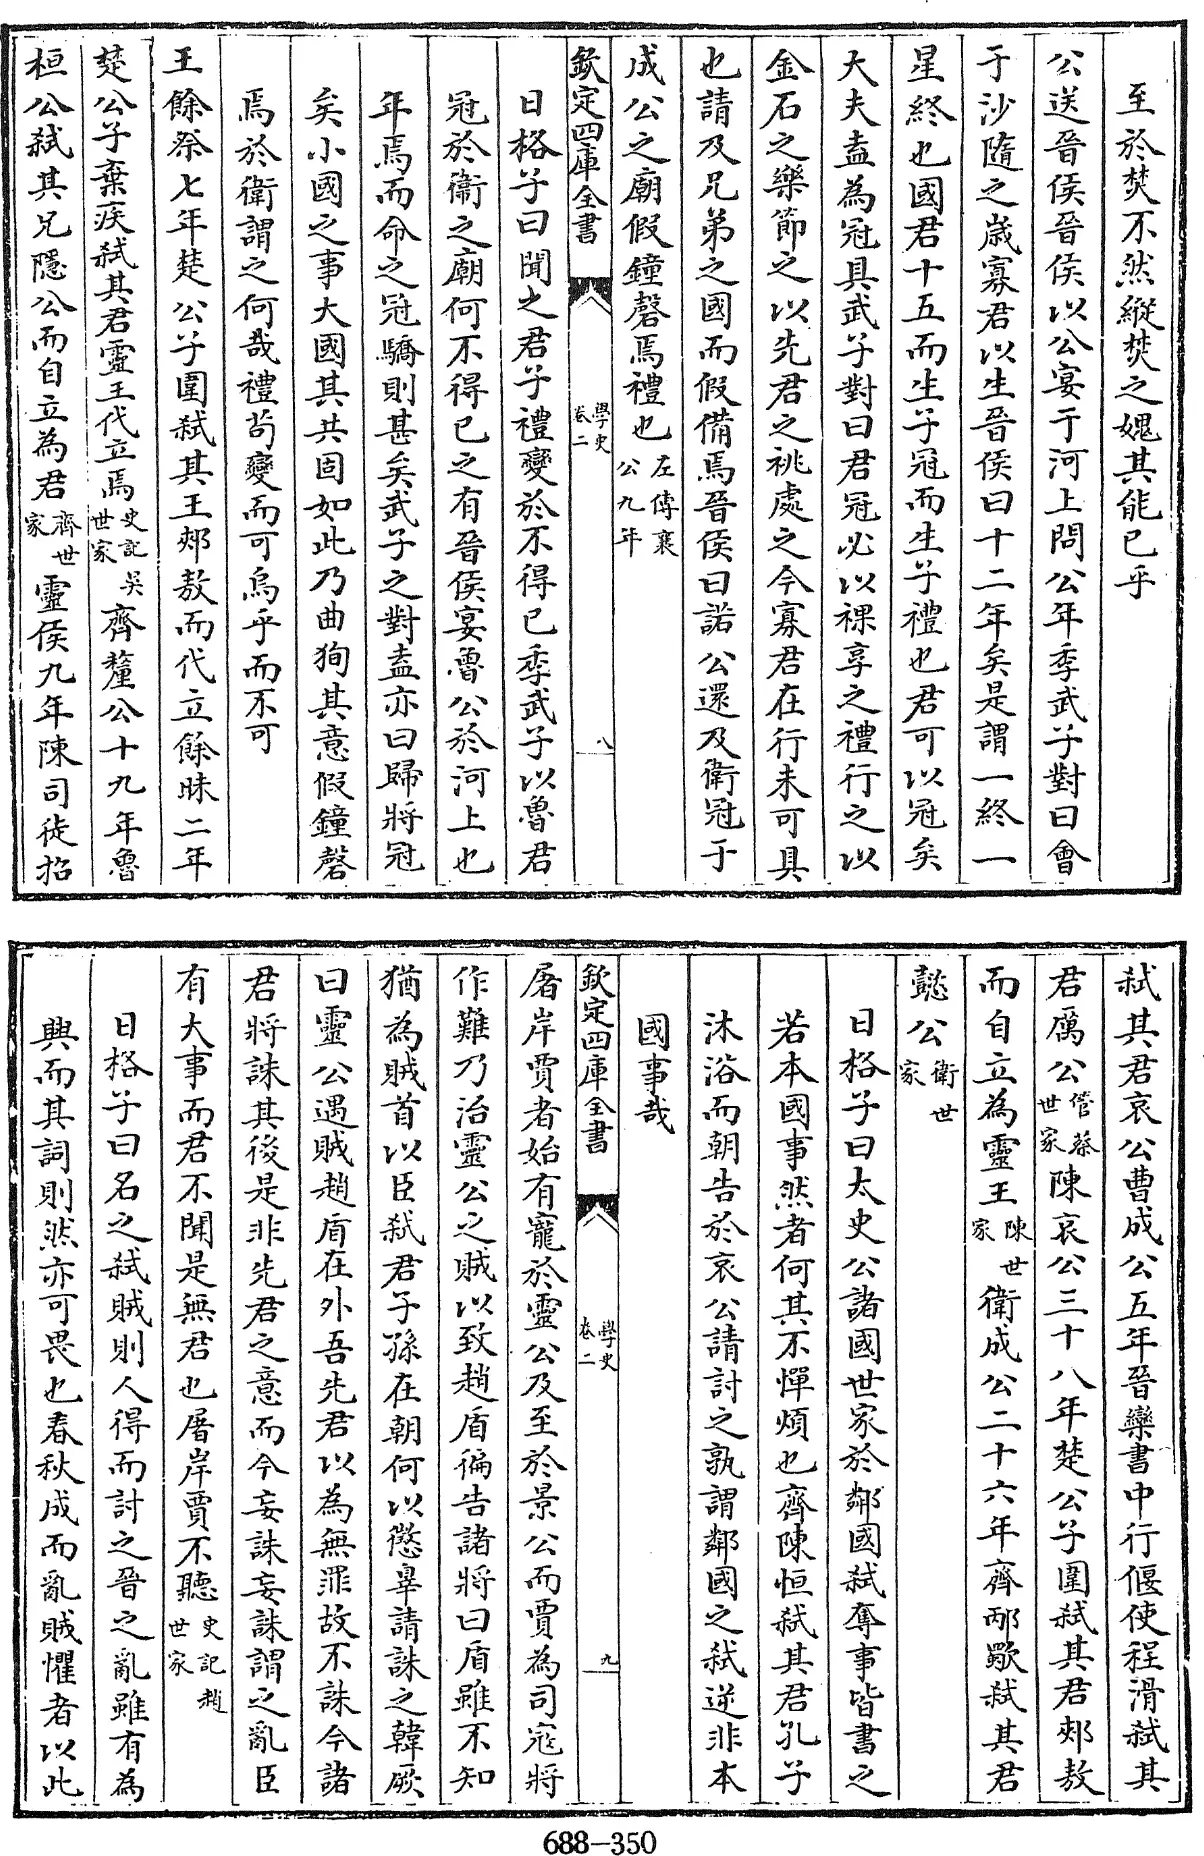 至於焚不然縱焚之媿其能已乎
公送晉侯晉侯以公宴于河上問公年季武子對曰會
于沙隨之歲寡君以生晉侯曰十二年矣是謂一終一
星終也國君十五而生子冠而生子禮也君可以冠矣
大夫盍為冠具武子對曰君冠必以祼享之禮行之以
金石之樂節之以先君之祧處之今寡君在行未可具
也請及兄弟之國而假備焉晉侯曰諾公還及衛冠于
成公之廟假鐘磬焉禮也左傳襄公九年
欽定四庫全書 學史卷二 八
日格子曰聞之君子禮變於不得已季武子以魯君
冠於衛之廟何不得已之有晉侯宴魯公於河上也
年焉而命之冠驕則甚矣武子之對盍亦曰歸將冠
矣小國之事大國其共固如此乃曲狥其意假鐘磬
焉於衛謂之何哉禮茍變而可烏乎而不可
王餘祭七年楚公子圍弒其王郟敖而代立餘昧二年
楚公子棄疾弒其君靈王代立焉史記吳世家齊釐公十九年魯
桓公弒其兄隱公而自立為君齊世家靈侯九年陳司徒招
弒其君哀公曹成公五年晉欒書中行偃使程滑弒其
君厲公管蔡世家陳哀公三十八年楚公子圍弒其君郟敖
而自立為靈王陳世家衛成公二十六年齊邴歜弒其君
懿公衛世家
日格子曰太史公諸國世家於鄰國弒奪事皆書之
若本國事然者何其不憚煩也齊陳恒弒其君孔子
沐浴而朝告於哀公請討之孰謂鄰國之弒逆非本
國事哉
欽定四庫全書 學史卷二 九
屠岸賈者始有寵於靈公及至於景公而賈為司寇將
作難乃治靈公之賊以致趙盾徧告諸將曰盾雖不知
猶為賊首以臣弒君子孫在朝何以懲辠請誅之韓厥
曰靈公遇賊趙盾在外吾先君以為無罪故不誅今諸
君將誅其後是非先君之意而今妄誅妄誅謂之亂臣
有大事而君不聞是無君也屠岸賈不聽史記趙世家
日格子曰名之弒賊則人得而討之晉之亂雖有為
興而其詞則然亦可畏也春秋成而亂賊懼者以此
688-350